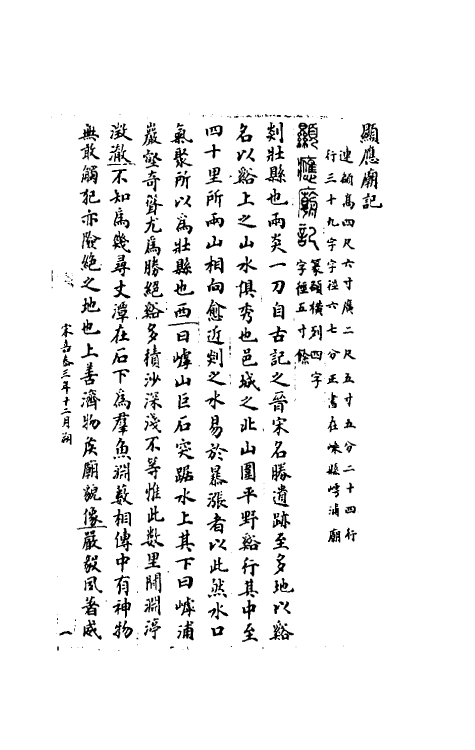 顯應廟記
連額高四尺六寸廣二尺五寸五分二十四行
行三十九字字徑六七分正書在嵊縣嶀浦廟
顯應廟記
篆額橫列四字
字徑五寸餘
剡壯縣也兩炎一刀自古記之晉宋名勝遺跡至多地以谿
名以谿上之山水俱秀也邑城之北山圍平野谿行其中至
四十里所兩山相向愈近剡之水易於暴漲者以此然水口
氣聚所以為壯縣也西一曰嶀山巨石突踞水上其下曰嶀浦
巖壑奇聳尤為勝絕谿多積沙深淺不等惟此數里間淵渟
澂澈不知為幾尋丈潭在石下為羣魚淵藪相傳中有神物
無敢觸犯亦險絕之地也上善濟物矦廟貌像嚴毅風著威
宋嘉泰三年十二月朔
一